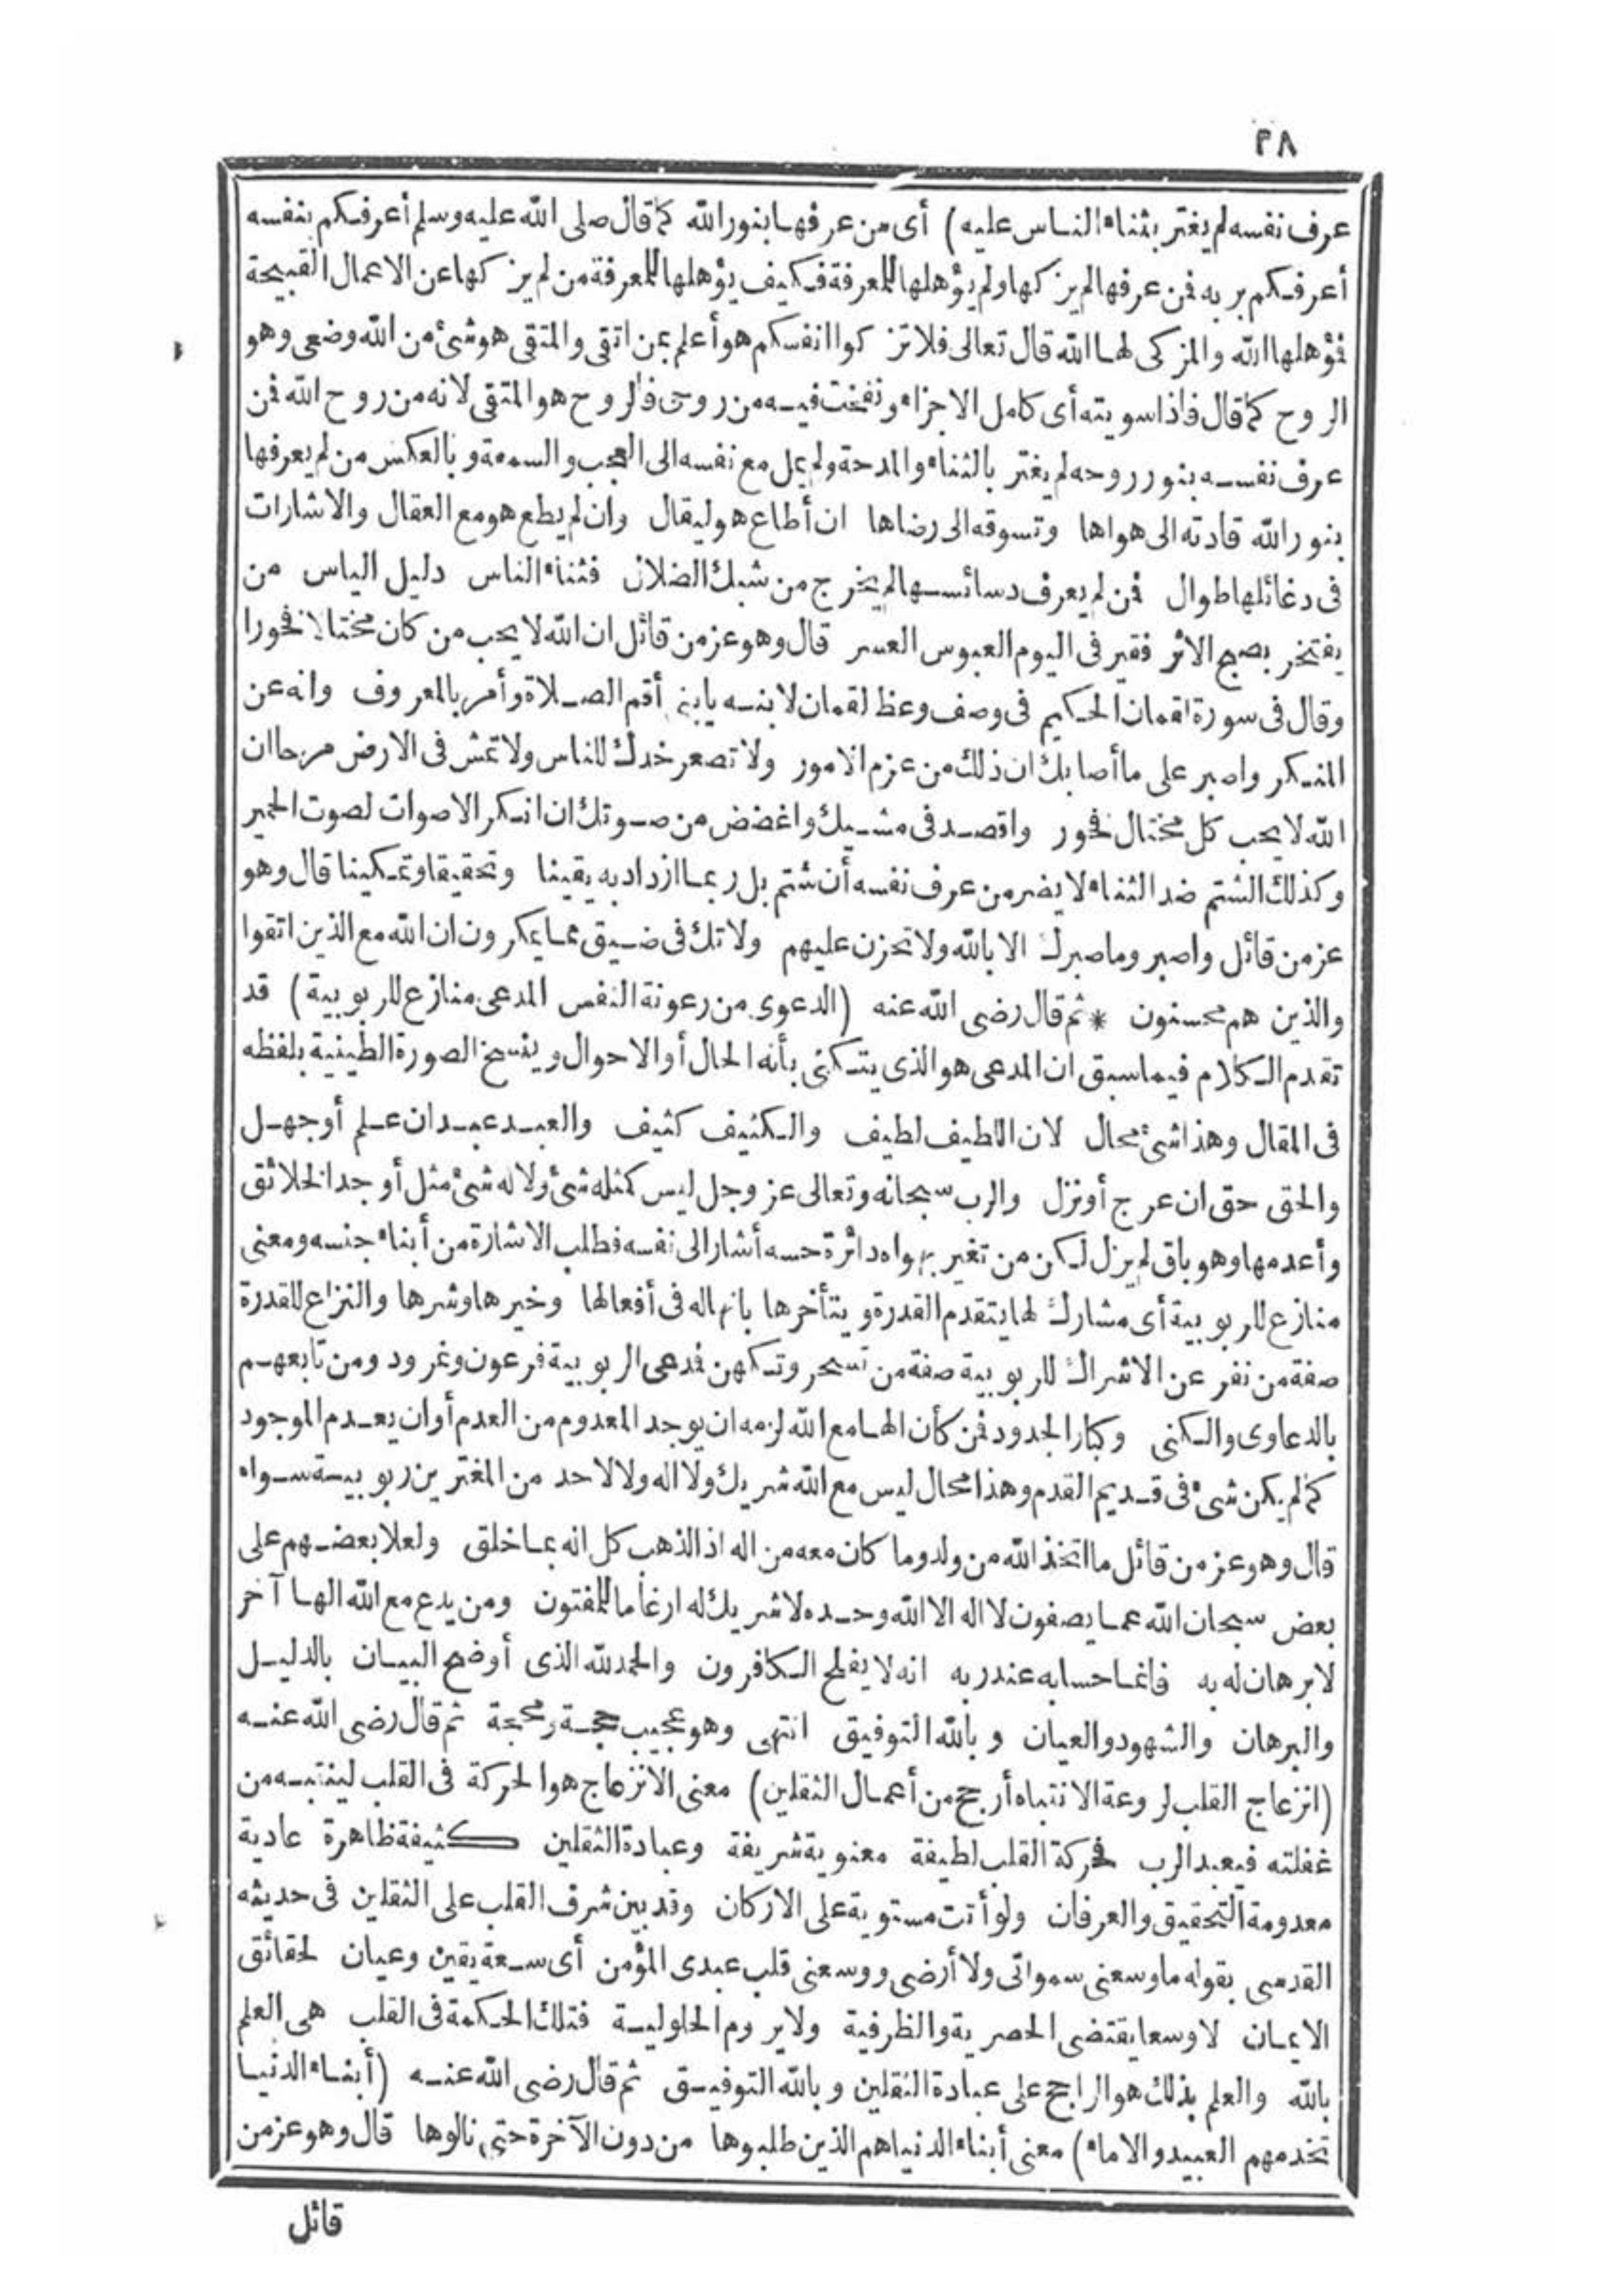 ٣٨
عرف نفسه لم يغتر بثناء الناس عليه) أى من عرفها بنور الله كما قال صلى الله عليه وسلم أعرفكم بنفسه
أعرفكم بربه فمن عرفها لم يزكها ولم يؤهلها للمعرفة فكيف يؤهلها للمعرفة من لم يزكها عن الاعمال القبيحة
فمؤهلها الله والمزكى لها الله قال تعالى فلا تزكوا انفسكم هو أعلم بمن اتقى والمتقى هو شئ من الله وضعى وهو
الروح كما قال فاذا سويته أى كامل الاجزاء ونفخت فيه من روحى فالروح هو المتقى لانه من روح الله فمن
عرف نفسه بنور روحه لم يغتر بالثناء والمدحة ولم يمل مع نفسه الى العجب والسمعة وبالعكس من لم يعرفها
بنور الله قادته الى هواها وتسوقه الى رضاها ان أطاع هو ليقال وان لم يطع هو مع العقال والاشارات
فى دغائلها طوال فمن لم يعرف دسائسها لم يخرج من شبك الضلال فثناء الناس دليل الياس من
يفتخر بصبح الاثر فقير فى اليوم العبوس العسر قال وهو عز من قائل ان الله لا يحب من كان مختالا فخورا
وقال فى سورة لقمان الحكيم فى وصف وعظ لقمان لابنه يابنى أقم الصلاة وأمر بالمعروف وانه عن
المنكر واصبر على ما أصابك ان ذلك من عزم الامور ولا تصعر خدك للناس ولا تمش فى الارض مرحا ان
الله لا يحب كل مختال فخور واقصد فى مشيك واغضض من صوتك ان انكر الاصوات لصوت الحمير
وكذلك الشتم ضد الثناء لا يضر من عرف نفسه أن شتم بل ربما ازداد به يقينا وتحقيقا وتمكينا قال وهو
عز من قائل واصبر وما صبرك الا بالله ولا تحزن عليهم ولا تك فى ضيق مما يمكرون ان الله مع الذين اتقوا
والذين هم محسنون * ثم قال رضى الله عنه (الدعوى من رعونة النفس المدعى منازع للربوبية) قد
تقدم الكلام فيما سبق ان المدعى هو الذى يتكنى بأنه الحال أو الاحوال وينسخ الصورة الطينية بلفظه
فى المقال وهذا شئ محال لان اللطيف لطيف والكثيف كثيف والعبد عبد ان علم أو جهل
والحق حق ان عرج أو نزل والرب سبحانه وتعالى عز وجل ليس كمثله شئ ولا له شئ مثل أوجد الخلائق
وأعدمها وهو باق لم يزل لكن من تغير بهواه دائرة حسه أشار الى نفسه فطلب الاشارة من أبناء جنسه ومعنى
منازع للربوبية أى مشارك لها يتقدم القدرة ويتأخرها بانه اله فى أفعالها وخيرها وشرها والنزاع للقدرة
صفة من نفر عن الاشراك للربوبية صفة من تسحر وتكهن فدعى الربوبية فرعون ونمرود ومن تابعهم
بالدعاوى والكنى وكبار الجدود فمن كأن الها مع الله لزمه ان يوجد المعدوم من العدم أو ان يعدم الموجود
كما لم يكن شئ فى قديم القدم وهذا محال ليس مع الله شريك ولا اله ولا لاحد من المغترين ربوبية سواه
قال وهو عز من قائل ما اتخذ الله من ولد وما كان معه من اله اذا لذهب كل اله بما خلق ولعلا بعضهم على
بعض سبحان الله عما يصفون لا اله الا الله وحده لا شريك له ارغاما للمفتون ومن يدع مع الله الها آخر
لا برهان له به فانما حسابه عند ربه انه لا يفلح الكافرون والحمد لله الذى أوضح البيان بالدليل
والبرهان والشهود والعيان وبالله التوفيق انتهى وهو عجيب حجة ومحجة ثم قال رضى الله عنه
(انزعاج القلب لروعة الانتباه أرجح من أعمال الثقلين) معنى الانزعاج هو الحركة فى القلب لينتبه من
غفلته فيعبد الرب فحركة القلب لطيفة معنوية شريفة وعبادة الثقلين كثيفة ظاهرة عادية
معدومة التحقيق والعرفان ولو أتت مستوية على الاركان وقد بين شرف القلب على الثقلين فى حديثه
القدسى بقوله ما وسعنى سمواتى ولا أرضى ووسعنى قلب عبدى المؤمن أى سعة يقين وعيان لحقائق
الايمان لا وسعا يقتضى الحصرية والظرفية ولا يروم الحلولية فتلك الحكمة فى القلب هى العلم
بالله والعلم بذلك هو الراجح على عبادة الثقلين وبالله التوفيق ثم قال رضى الله عنه (أبناء الدنيا
تخدمهم العبيد والاماء) معنى أبناء الدنيا هم الذين طلبوها من دون الآخرة حتى نالوها قال وهو عز من
قائل